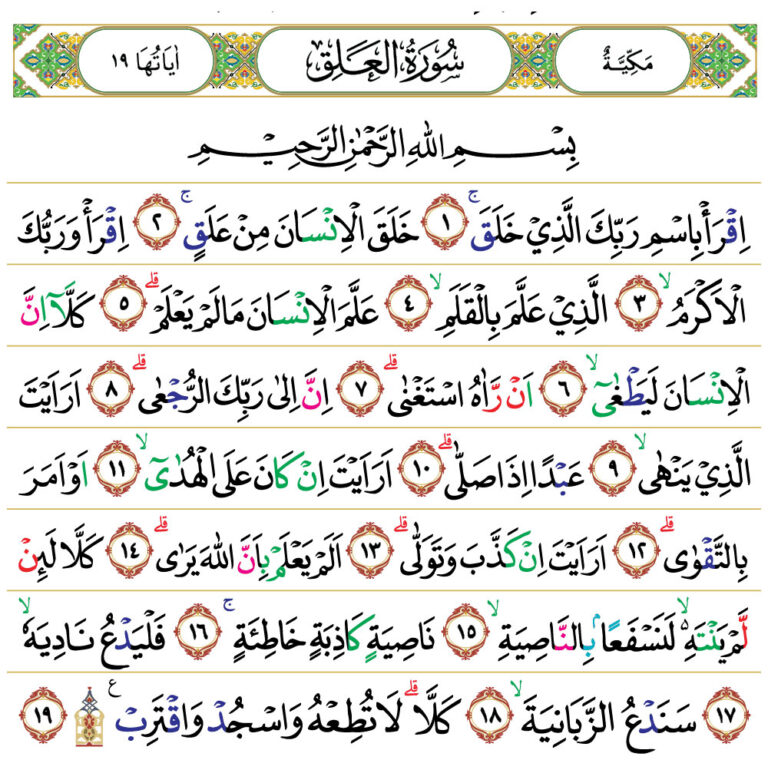 مَكِّيَّةٌ سُورَةُ الْعَلَقِ اٰيَاتُهَا ١٩
بِسْمِ اللهِ الرَّحْمٰنِ الرَّحِيْمِ
اِقْرَأْ بِاسْمِ رَبِّكَ الَّذِيْ خَلَقَ ۚ ١ خَلَقَ الْاِنْسَانَ مِنْ عَلَقٍ ۚ ٢ اِقْرَأْ وَرَبُّكَ
الْاَكْرَمُ ۙ ٣ الَّذِيْ عَلَّمَ بِالْقَلَمِ ۙ ٤ عَلَّمَ الْاِنْسَانَ مَا لَمْ يَعْلَمْ ۗ ٥ كَلَّآ اِنَّ
الْاِنْسَانَ لَيَطْغٰىٓ ۙ ٦ اَنْ رَّاٰهُ اسْتَغْنٰى ۗ ٧ اِنَّ اِلٰى رَبِّكَ الرُّجْعٰى ۗ ٨ اَرَاَيْتَ
الَّذِيْ يَنْهٰى ۙ ٩ عَبْدًا اِذَا صَلّٰى ۗ ١٠ اَرَاَيْتَ اِنْ كَانَ عَلَى الْهُدٰىٓ ۙ ١١ اَوْ اَمَرَ
بِالتَّقْوٰى ۗ ١٢ اَرَاَيْتَ اِنْ كَذَّبَ وَتَوَلّٰى ۗ ١٣ اَلَمْ يَعْلَمْ بِاَنَّ اللهَ يَرٰى ۗ ١٤ كَلَّا لَئِنْ
لَّمْ يَنْتَهِ ەۙ لَنَسْفَعًاۢ بِالنَّاصِيَةِ ۙ ١٥ نَاصِيَةٍ كَاذِبَةٍ خَاطِئَةٍ ۚ ١٦ فَلْيَدْعُ نَادِيَهٗ ۙ
١٧ سَنَدْعُ الزَّبَانِيَةَ ۙ ١٨ كَلَّا ۗ لَا تُطِعْهُ وَاسْجُدْ وَاقْتَرِبْ ع ١٩